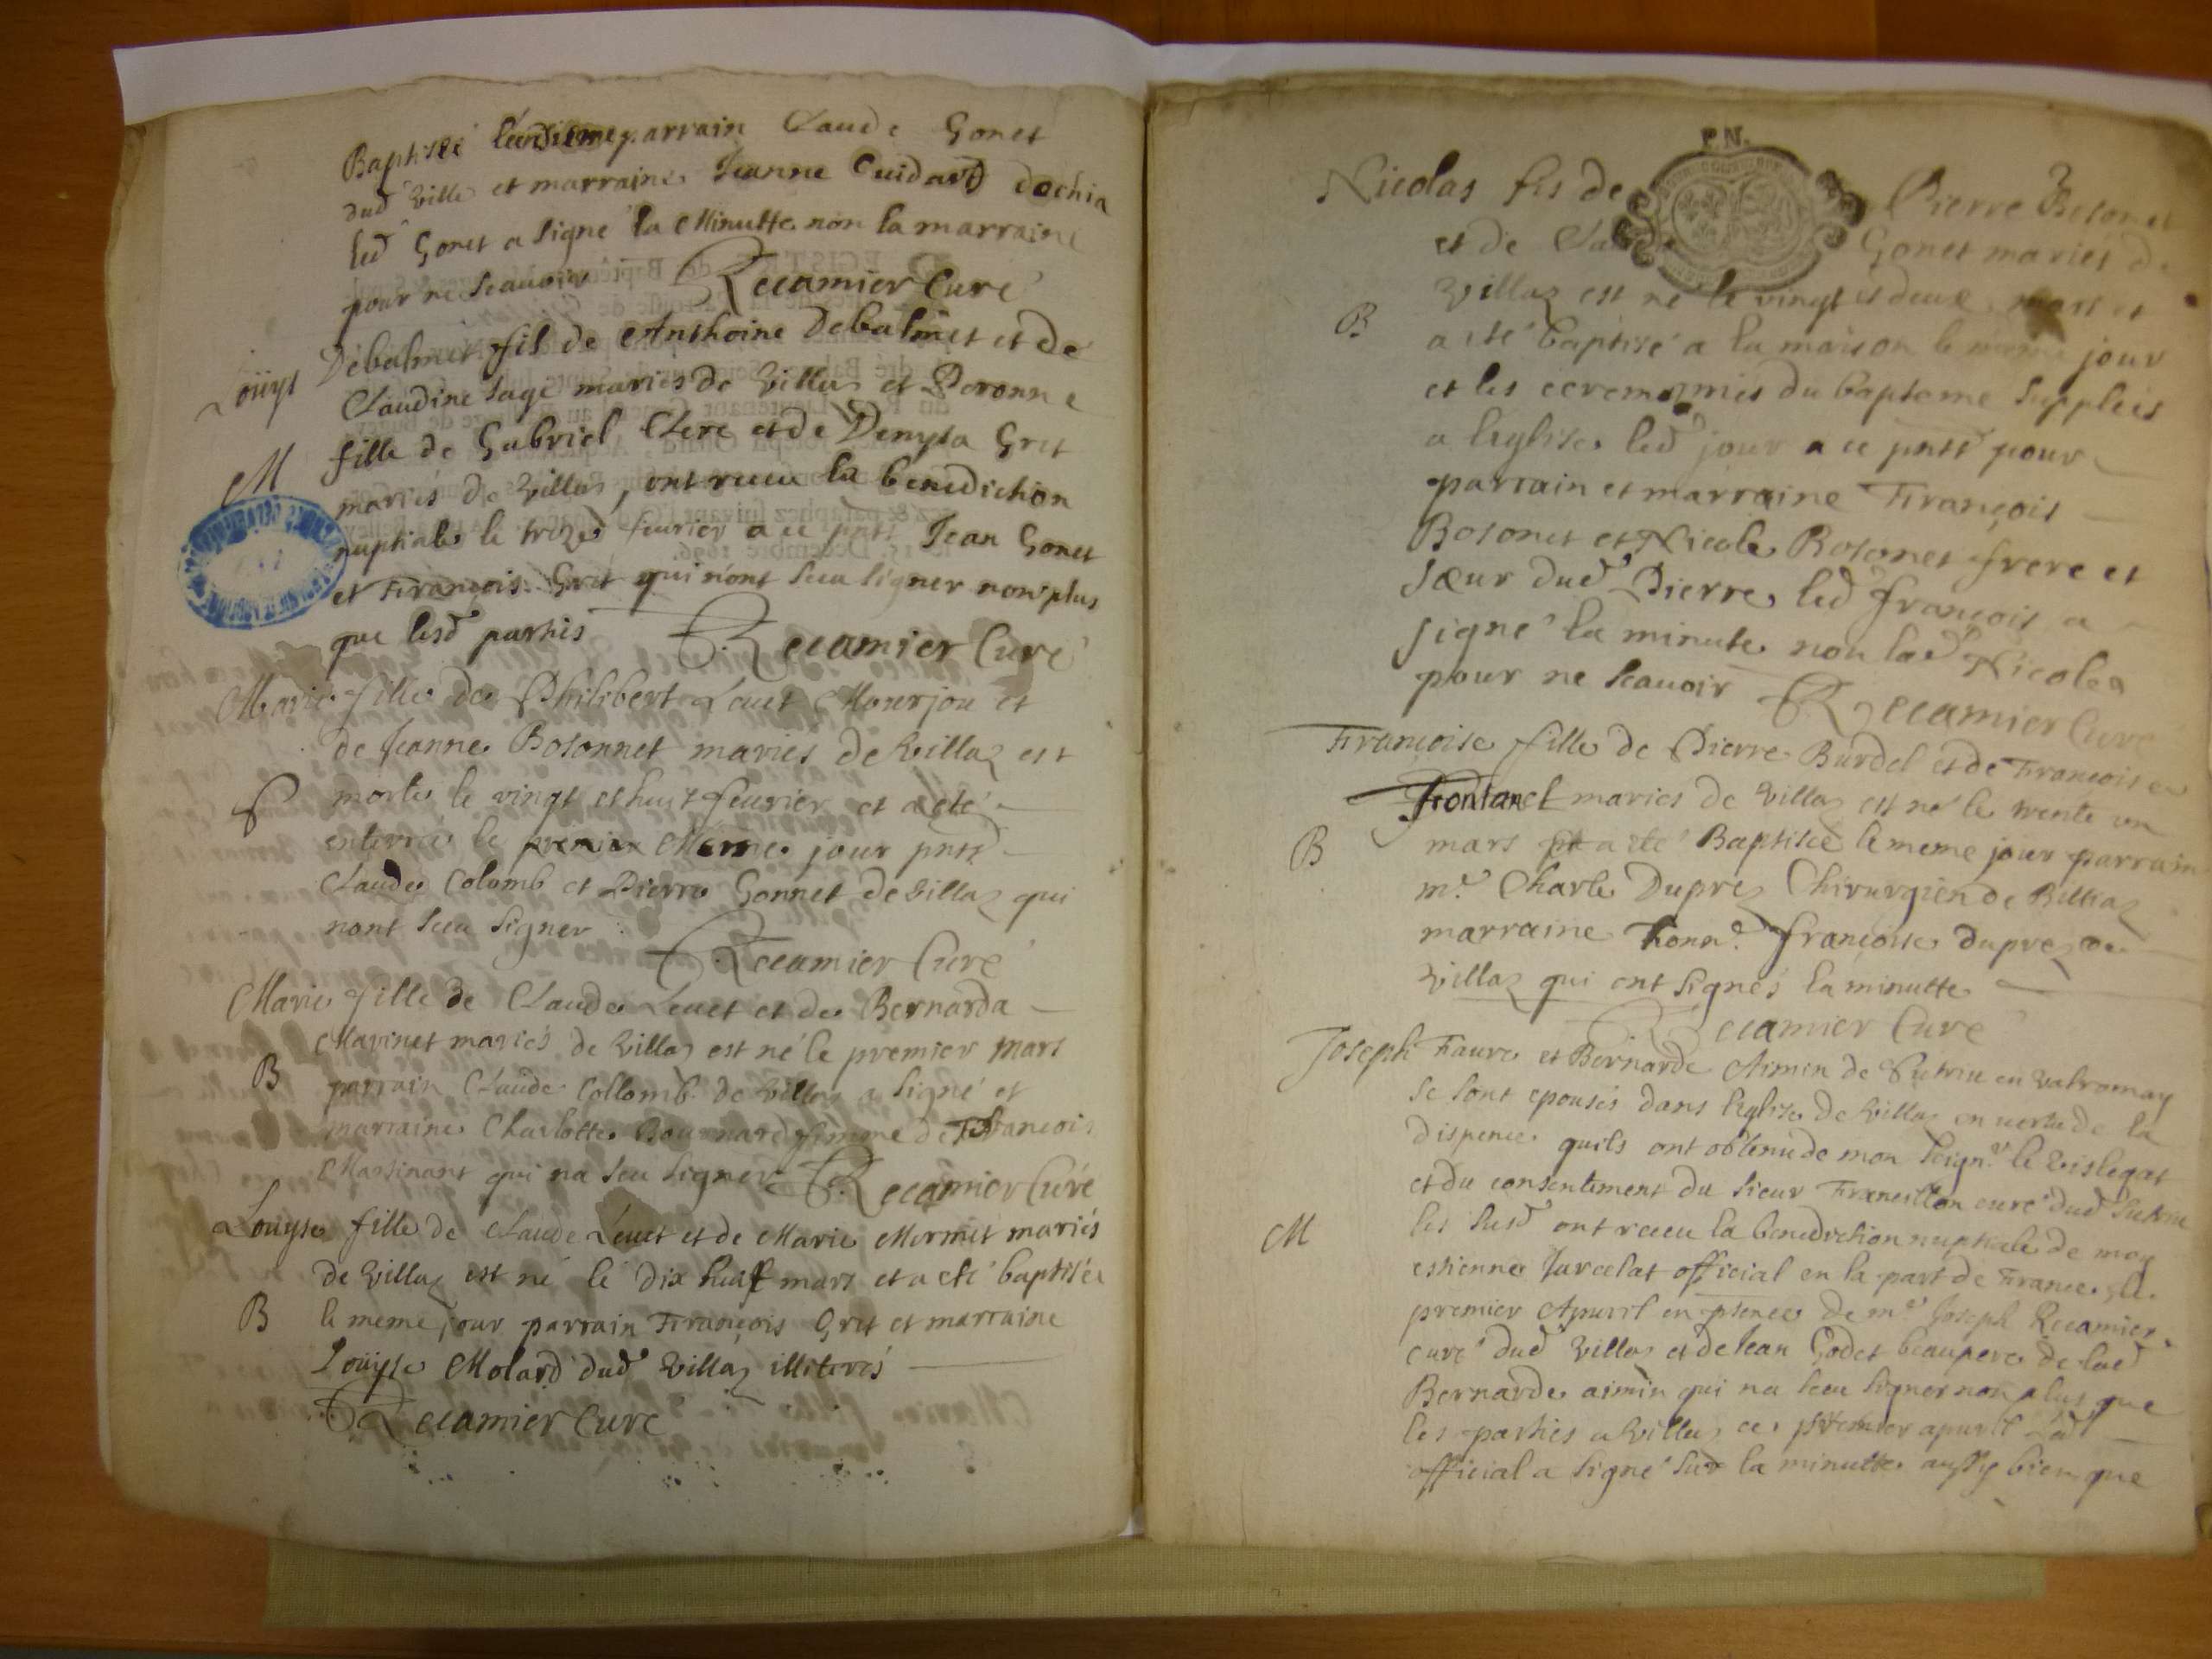 Baptisée parrain Claude Gonet
dud Villa et marraine Jeanne Cuidard dochia
led Gonet a signé la Minutte non la marraine
pour ne scauoir Recamier Curé
Loüys Debalmet fil de Anthoine Debalmet et de
Claudine Sage mariés de Villas et Peronne
fille de Gabriel Clerc et de Denysa Gret
M
mariés de Villas, ont receu la benediction
nuptiale le trezed feurier a ce pnts Jean Gonet
et François Gret qui n'ont sceu signer non plus
que lesd parties Recamier Curé
Marie fille de Philibert Leuet Mourjou et
de Jeanne Bosonnet mariés de Villaz est
S
morte le vingt et huit feurier et a eté
enterrée le Meme jour pntz
Claude Colomb et Pierre Gonnet de Villaz qui
nont sceu signer
Recamier Curé
Marie fille de Claude Leuet et de Bernarda
Marinet mariés de Villaz est né le premier mars
B
parrain Claude Collomb de Villaz a signé et
marraine Charlotte Bournard femme de Francois
Massinant qui na sceu signer Recamier Curé
Louyse fille de Claude Leuet et de Marie Mermet mariés
de Villaz est né le dix huit mars et a eté baptisée
B
le meme jour parrain François Gret et marraine
Loüyse Molard dud Villaz illiterés
Recamier Curé
P.N.
Nicolas fis de Pierre Bosonet
et de Gonet mariés de
Villaz est né le vingt et deux mars et
B
a eté baptisé a la maison le meme jour
et les ceremonies du bapteme supplées
a leglise led jour a ce pntz pour
parrain et marraine François
Bosonet et Nicole Bosonet frere et
sœur dud Pierre led françois a
signé la minute non lad Nicole
pour ne scauoir Recamier Curé
Françoise fille de Pierre Burdel et de Françoise
Frontanel mariés de Villaz est né le trente un
B
mars et a eté Baptisée le meme jour parrain
mr Charle Duprez Chirurgien de Billiaz
marraine honne françoise duprez de
Villaz qui ont signés la minutte
Recamier Curé
Joseph Faure et Bernarde Aimin de Sutrieu en Valromay
se sont epousés dans leglise de Villaz en vertu de la
dispence quils ont obtenu de mon Seignr le Vislegat
et du consentement du sieur Francillon curé dud Sutrieu
M
les susd ont receu la benediction nuptiale de moy
estienne Jarcelat official en la part de France le
premier Apuril en psence de mre Joseph Recamier
curé dud Villaz et de Jean Godet beaupere de lad
Bernarde aimin qui na sceu signer non plus que
les parties a Villaz ce premier apuril Led
official a signé sur la minutte aussy bien que